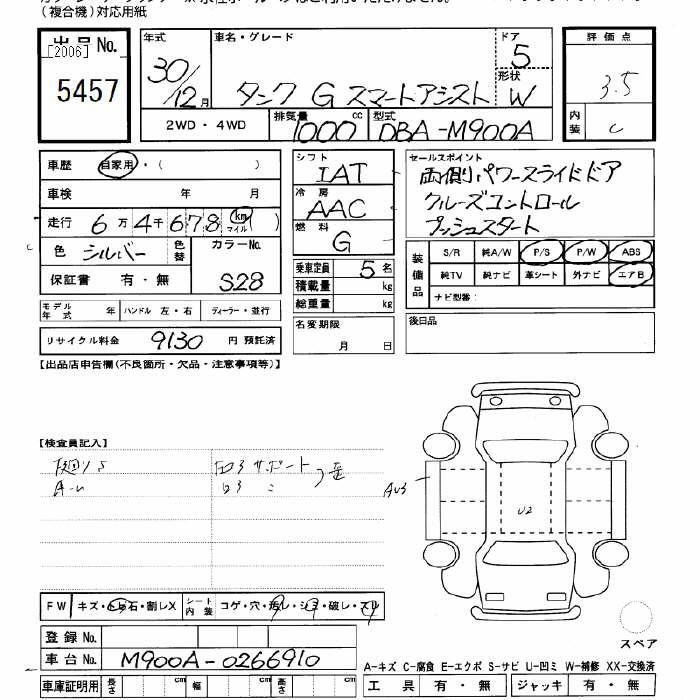 (複合機)対応用紙
出品 No.
[2006]
5457
年式
30/12月
車名・グレード
タンク G スマートアシスト
ドア
5
形状
W
評価点
3.5
内装
C
2WD・4WD
排気量
1000 cc
型式
DBA-M900A
車歴
自家用・( )
車検 年 月
走行 6万4千678 km マイル
色
シルバー
色替
カラーNo.
S28
保証書 有・無
シフト
IAT
冷房
AAC
燃料
G
乗車定員 5 名
積載量 kg
総重量 kg
セールスポイント
両側パワースライドドア
クルーズコントロール
プッシュスタート
装備品
S/R 純A/W P/S P/W ABS
純TV 純ナビ 革シート 外ナビ エアB
ナビ型番:
モデル年式 ハンドル 左・右 ディーラー・並行
リサイクル料金 9130 円 預託済
名変期限
月 日
後日品
【出品店申告欄(不良箇所・欠品・注意事項等)】
【検査員記入】
サポート
AU3
U2
FW キズ・トビ石・割レX
シート内装 コゲ・穴・汚レ・シミ・破レ・スレ
登録 No.
車台 No. M900A-0266910
車庫証明用 長さ cm 幅 cm 高さ cm
スペア
A-キズ C-腐食 E-エクボ S-サビ U-凹ミ W-補修 XX-交換済
工具 有・無 ジャッキ 有・無